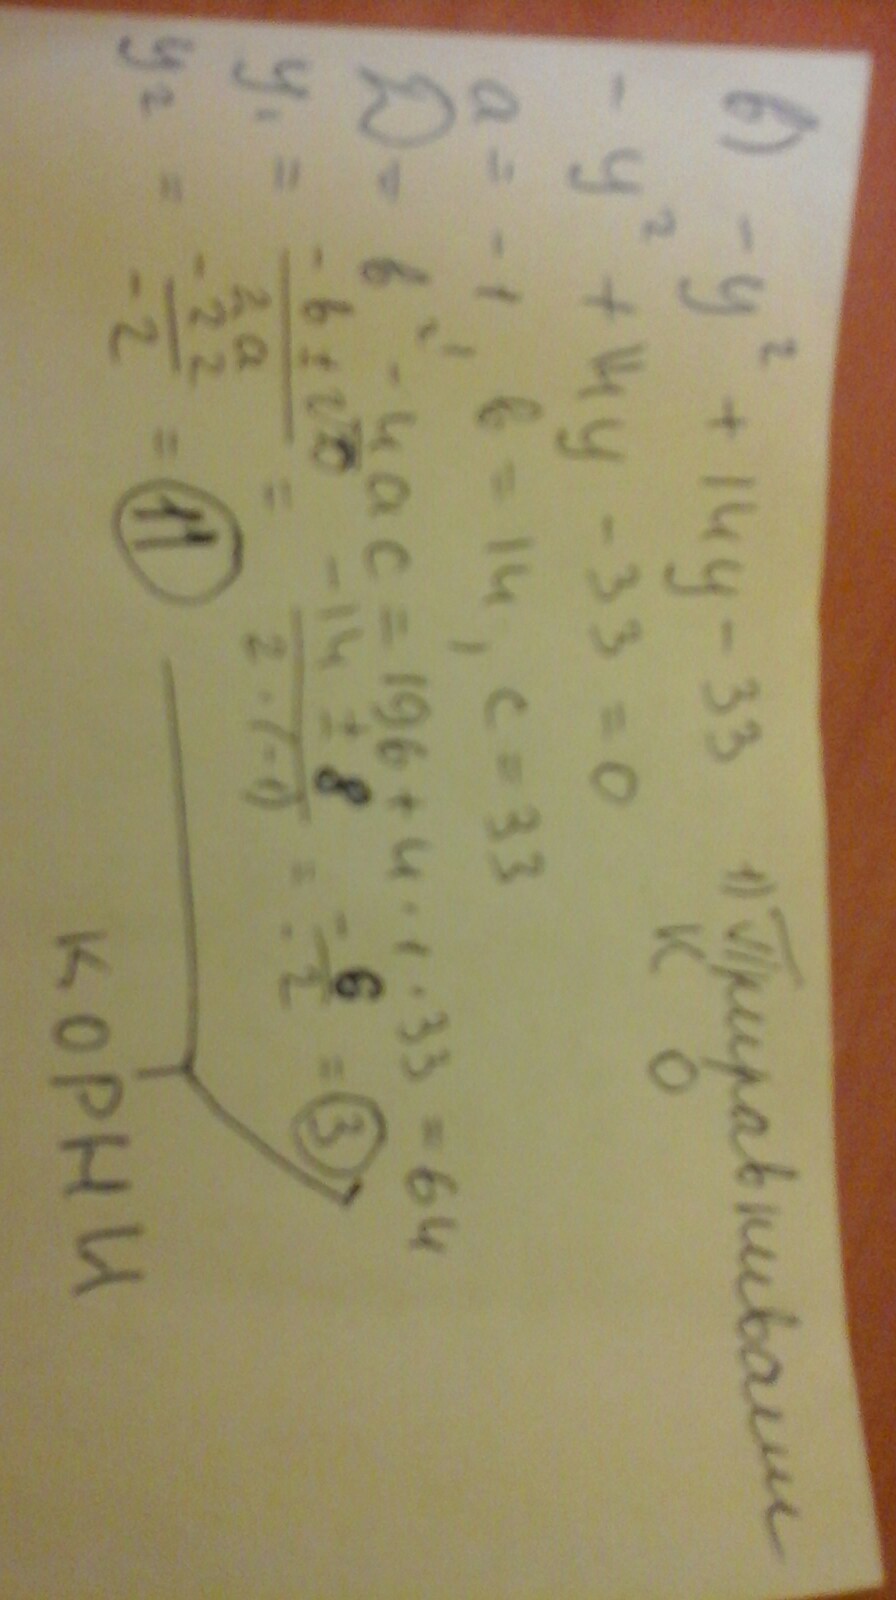 в) -y² + 14y - 33 1) Приравниваем
к 0
- y² + 14y - 33 = 0
a = -1, b = 14, c = 33
D = b² - 4ac = 196 + 4 · 1 · 33 = 64
y₁ = (-b ± √D) / 2a = (-14 ± 8) / 2 · (-1) = -6 / -2 = 3
y₂ = -22 / -2 = 11
КОРНИ